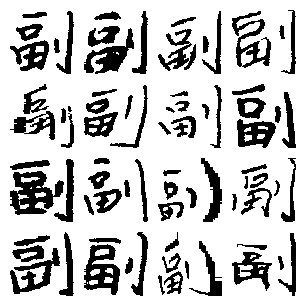 副副副副
副副副副
副副副副
副副副副